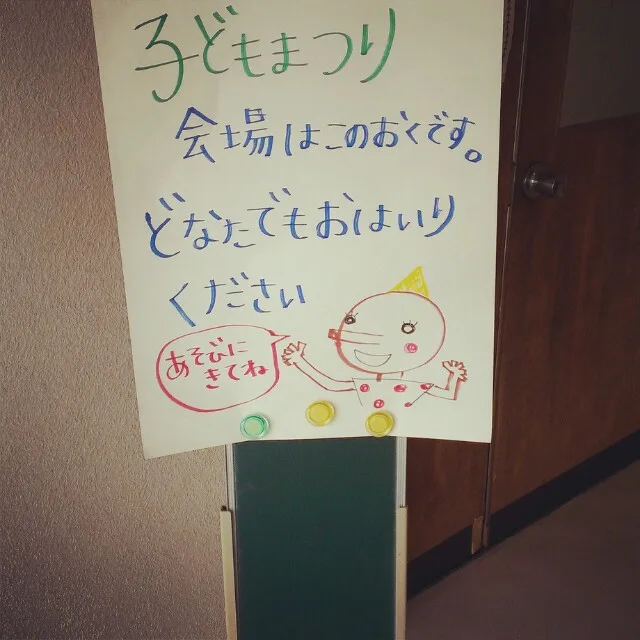 子どもまつり
会場はこのおくです。
どなたでもおはいり
ください
あそびに
きてね